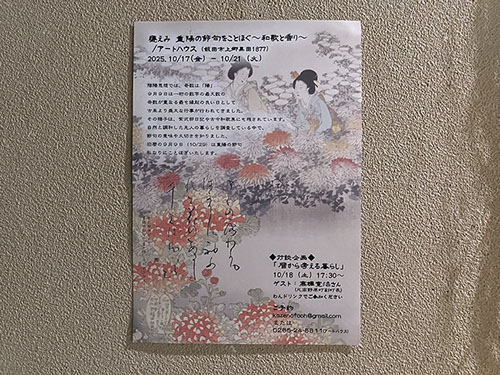 えみ 重陽の節句をことほぐ～和歌と香り～
/アートハウス (飯田市上郷黒田1877)
2025. 10/17(金) － 10/21 (火)
陰陽思想では、奇数は「陽」
9月9日は一桁の数字の最大数の
奇数が重なる最も縁起の良い日として
古来より盛大な行事が行われてきました。
その様子は、紫式部日記や古今和歌集にも残されています。
自然と調和した先人の暮らしを調査している中で、
節句の意味や大切さを知りました。
旧暦の9月9日 (10/29) は重陽の節句
私なりにことほぎいたします。
◆対談企画◆
「暦から考える暮らし」
10/18 (土) 17:30～
ゲスト：高橋寛治さん
わんドリンクでご参加ください
ご予約
kazenofaoh@gmail.com
または
0265-24-8811(アートハウス)